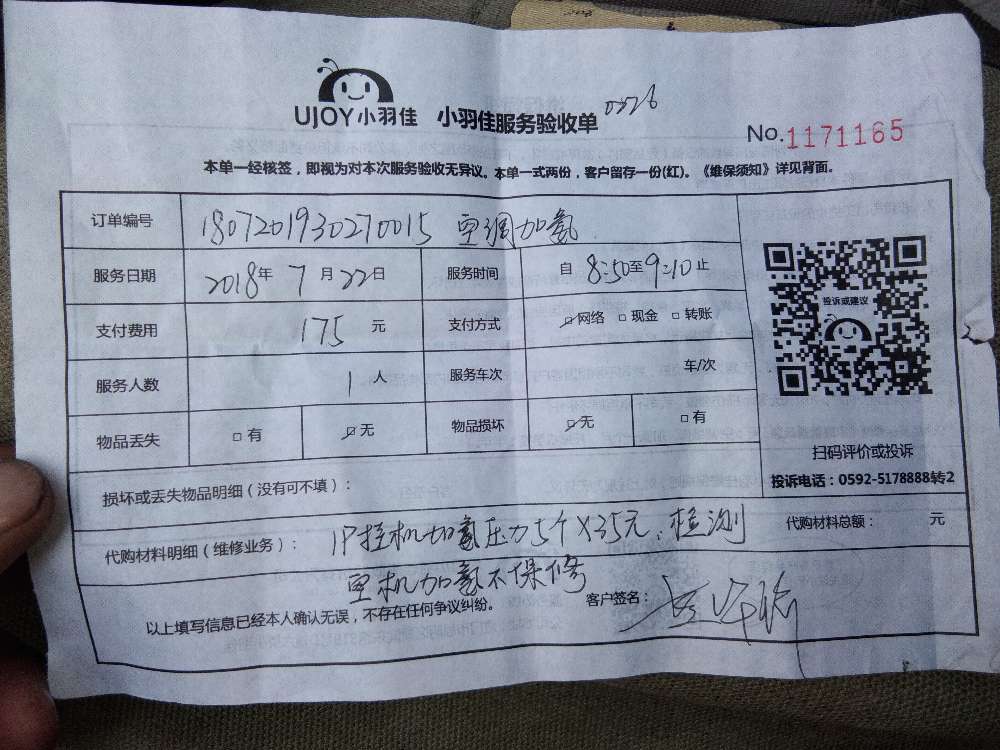 UJOY小羽佳 小羽佳服务验收单 0326
No.1171165
本单一经核签，即视为对本次服务验收无异议。本单一式两份，客户留存一份(红)。《维保须知》详见背面。
订单编号 1807201930270015 空调加氨
服务日期 2018年 7月22日 服务时间 自 8:50至9:10止
支付费用 175 元 支付方式 ☑网络 □现金 □转账
投诉或建议
服务人数 1人 服务车次 车/次
物品丢失 □有 ☑无 物品损坏 ☑无 □有
扫码评价或投诉
损坏或丢失物品明细（没有可不填）：
投诉电话：0592-5178888转2
代购材料明细（维修业务）： 1P挂机加氨压力5个X35元，检测 代购材料总额： 元
空机加氨不保修
以上填写信息已经本人确认无误，不存在任何争议纠纷。 客户签名：